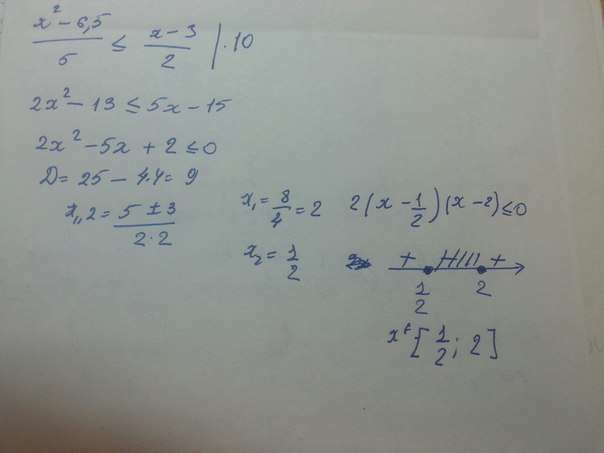 x² - 6,5 / 5 ≤ x - 3 / 2 | · 10
2x² - 13 ≤ 5x - 15
2x² - 5x + 2 ≤ 0
D = 25 - 4·4 = 9
x₁,2 = 5 ± 3 / 2·2
x₁ = 8/4 = 2
x₂ = 1/2
2(x - 1/2)(x - 2) ≤ 0
+ +
1/2 2
x ∈ [1/2; 2]